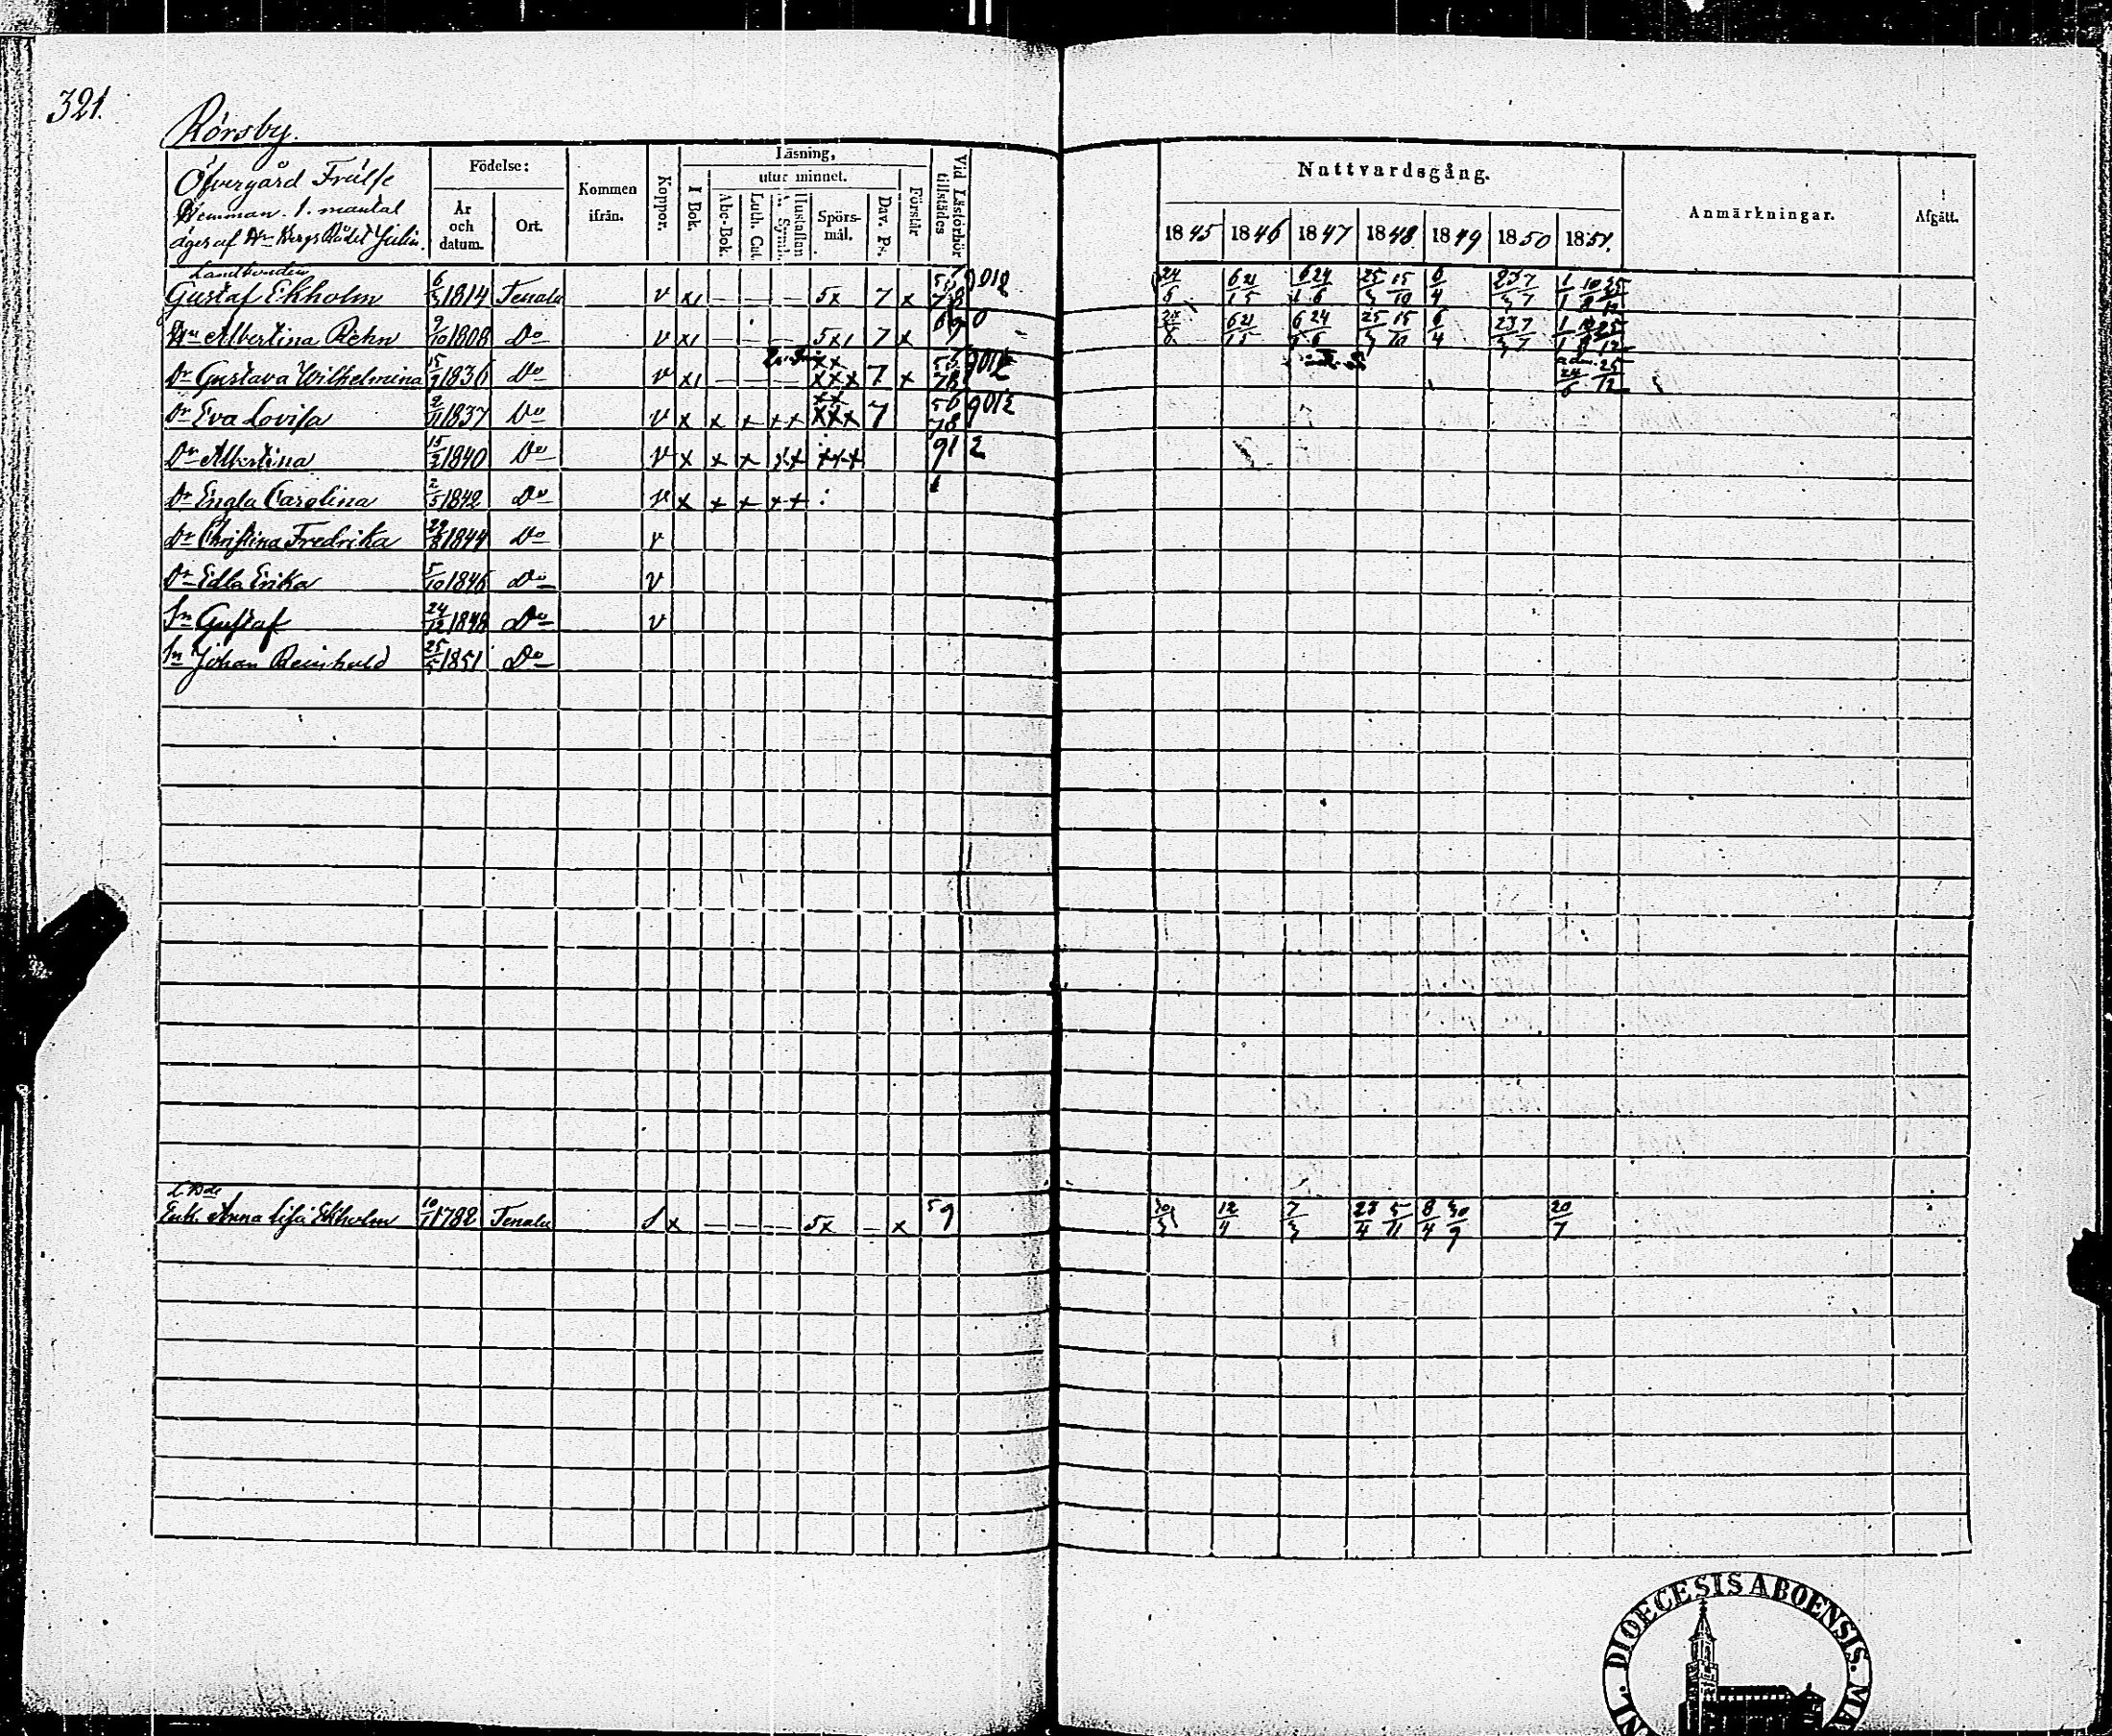 321.
Rörsby.
Öfvergård Frälse
Hemman. 1. mantal
äges af Hr Bergs Rådet Julin.
Födelse:
År och datum.
Ort.
Kommen ifrån.
Koppor.
Läsning,
I Bok.
utur minnet.
Abc-Bok
Luth. Cat.
Hustaflan
Spörs-mål.
Dav. Ps.
Förstår
Vid Läsförhör tillstädes
Nattvardsgång.
1845 1846 1847 1848 1849 1850 1851.
Anmärkningar.
Afgått.
Landbonden
Gustaf Ekholm 6/3 1814 Tenala v x1 — — — 5x 7 x 9012 24/5 6/1 21/5 6/1 24/6 25/3 15/10 6/4 23/3 7/7 1/1 10/8 25/12
Hu Albertina Rehn 9/10 1808 Do v x1 — — — 5x1 7 x 6/1 21/5 6/1 24/6 25/3 15/10 6/4 23/3 7/7 1/1 25/12
Dr Gustava Wilhelmina 15/9 1836 Do v x1 — — — xx xxx 7 x 78 9012 ad. 24/6 25/12
Dr Eva Lovisa 2/11 1837 Do v x x x xx xx xxx 7 56 78 9012
Dr Albertina 15/2 1840 Do v x x x xx xxx 91 2
Dr Engla Carolina 2/5 1842 Do v x x x xx
Dr Christina Fredrika 29/8 1844 Do v
Dr Edla Erika 5/10 1846 Do v
Sn Gustaf 24/12 1848 Do v
Sn Johan Reinhold 25/5 1851 Do
Enk. Anna Lisa Ekholm 10/1 1782 Tenala x — — — 5x — x 59 12/4 7/3 23/4 5/11 8/4 30/9 20/7
DIOECESIS ABOENSIS.